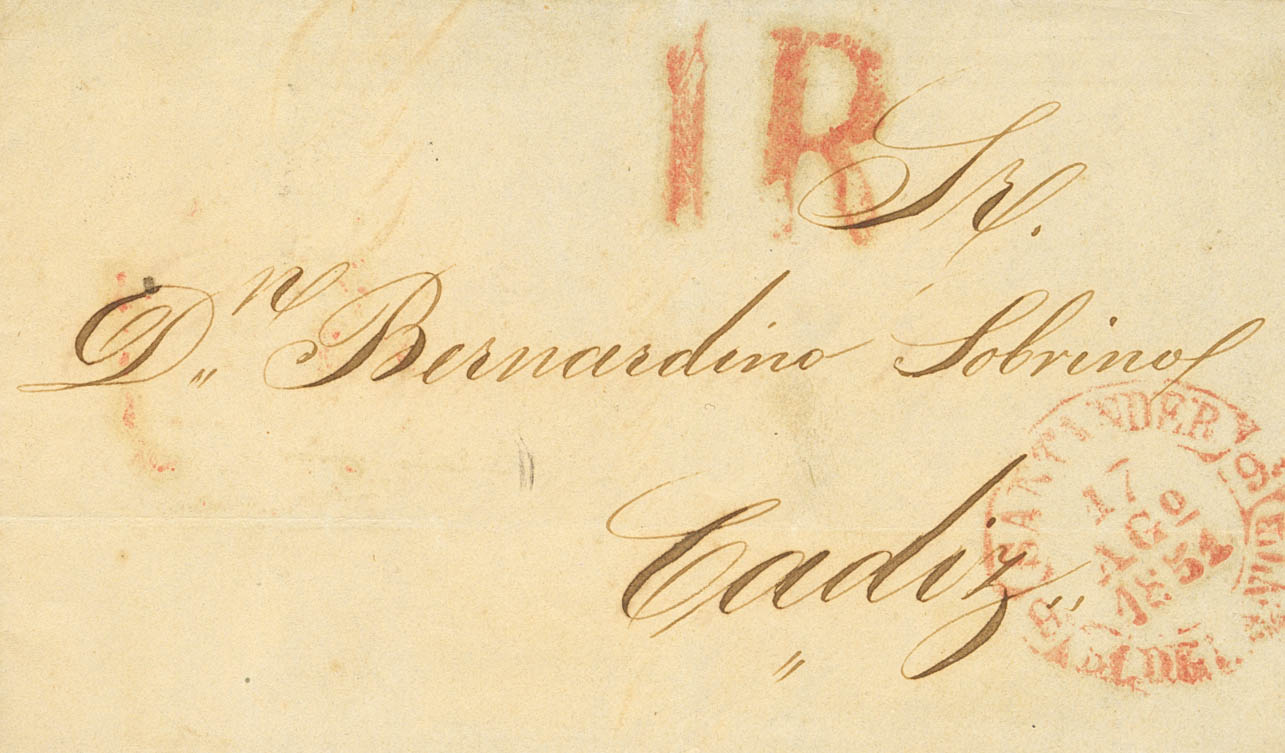 1R
Sr.
Dn Bernardino Sobrino
Cadiz
SANTANDER
17
AGO
185